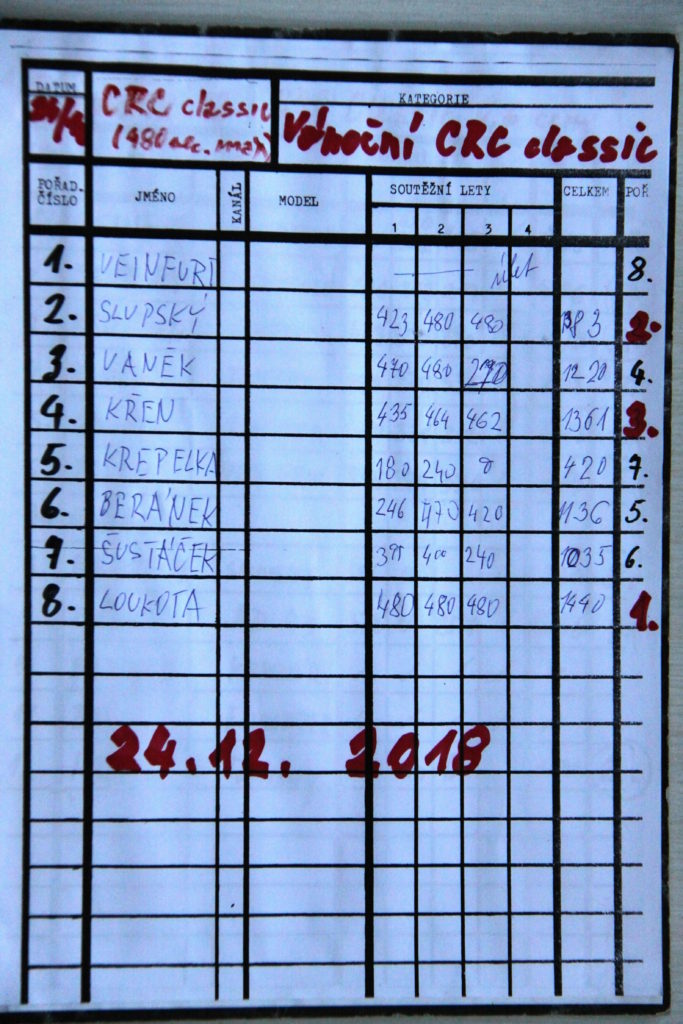 DATUM CRC classic KATEGORIE
24/12 (480 sec. max) Vánoční CRC classic
POŘAD. ČÍSLO JMÉNO KANÁL MODEL SOUTĚŽNÍ LETY CELKEM POŘ
1 2 3 4
1. VEINFURT úlet 8.
2. SLUPSKÝ 423 480 480 1383 2.
3. VANĚK 470 480 270 1220 4.
4. KŘEN 435 464 462 1361 3.
5. KREPELKA 180 240 0 420 7.
6. BERÁNEK 246 470 420 1136 5.
7. ŠUSTÁČEK 395 400 240 1035 6.
8. LOUKOTA 480 480 480 1440 1.
24.12. 2018